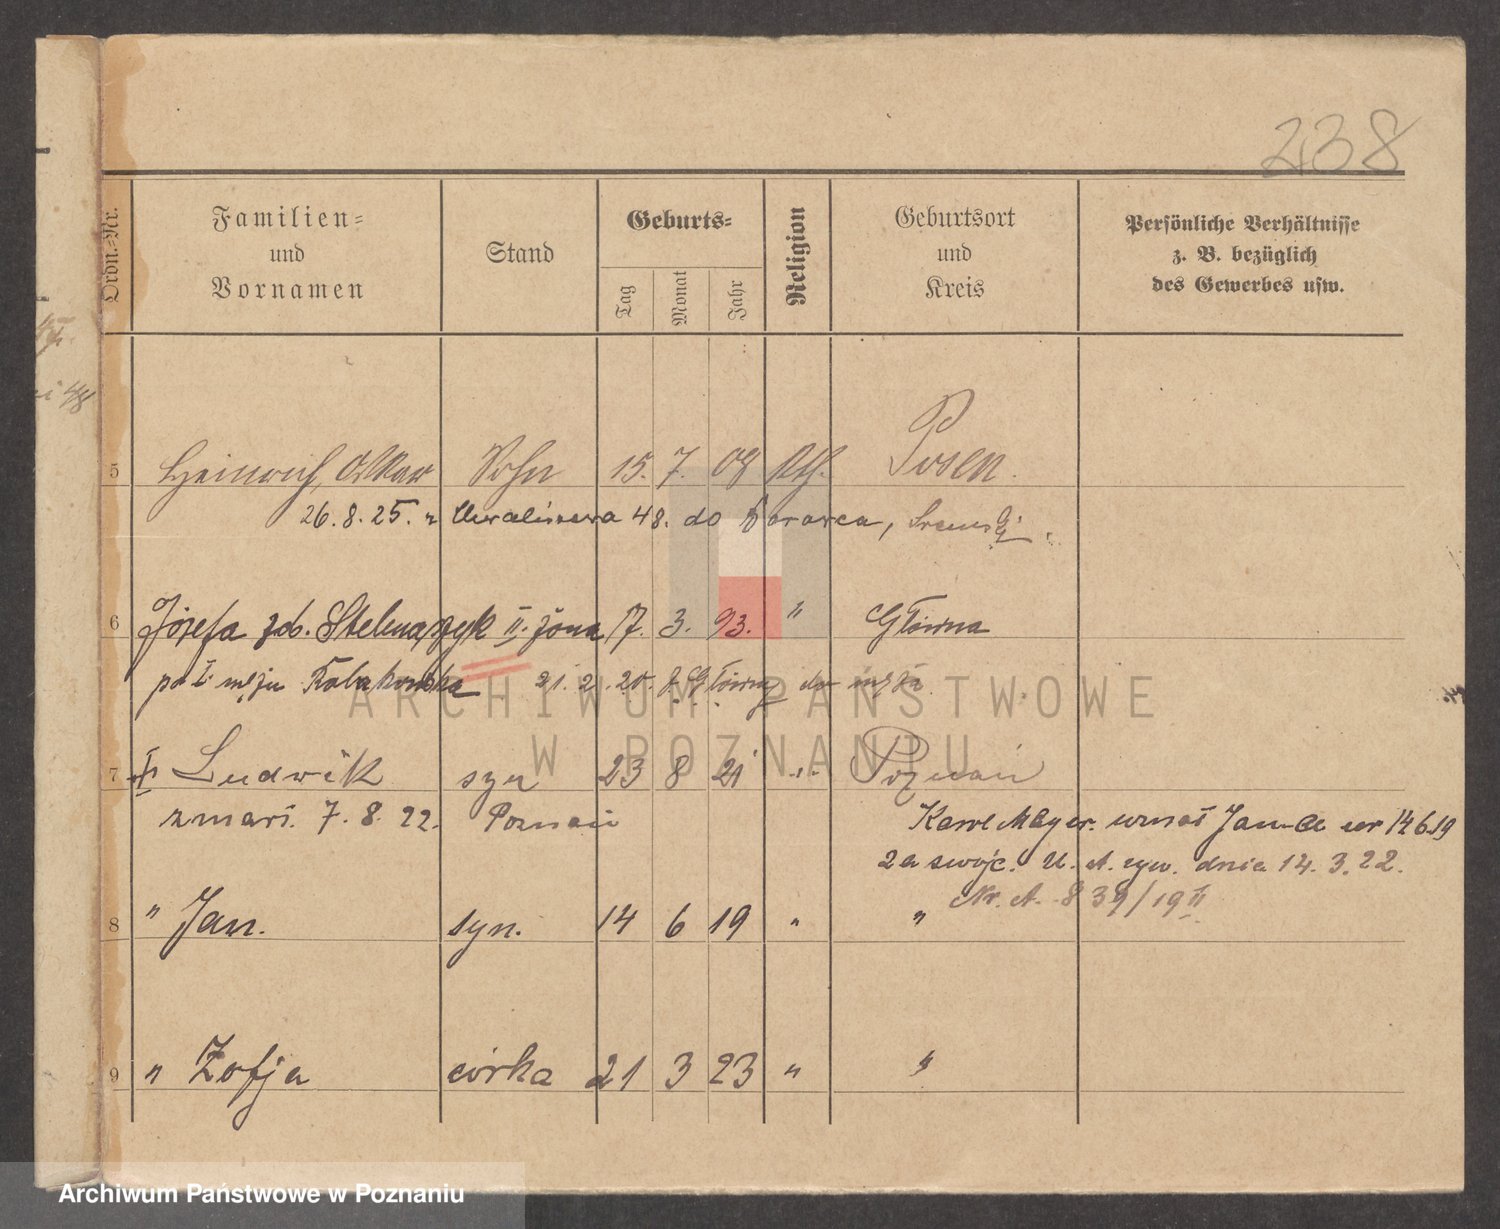 238
Ordn.-Nr.
Familien-
und
Vornamen
Stand
Geburts-
Tag
Monat
Jahr
Religion
Geburtsort
und
Kreis
Persönliche Verhältnisse
z. B. bezüglich
des Gewerbes usw.
5 Heinrich, Oskar Sohn 15. 7. 09 kth. Posen.
26. 8. 25. 48. do
6 Józefa żona 17. 3. 93. " Główna
po I mężu 21. 2. 20. z Główny do męża
7 Ludwik syn 23 8 21 " Poznań
zmarł. 7. 8. 22. Poznań
Karol Mayer. uznał Jana ur 14 6 19
za swoje. U. A. dnia 14. 3. 22.
Nr. A. 839/19 II
8 " Jan. syn. 14 6 19 " "
9 " Zofja córka 21 3 23 " "
ARCHIWUM PAŃSTWOWE
W POZNANIU
Archiwum Państwowe w Poznaniu